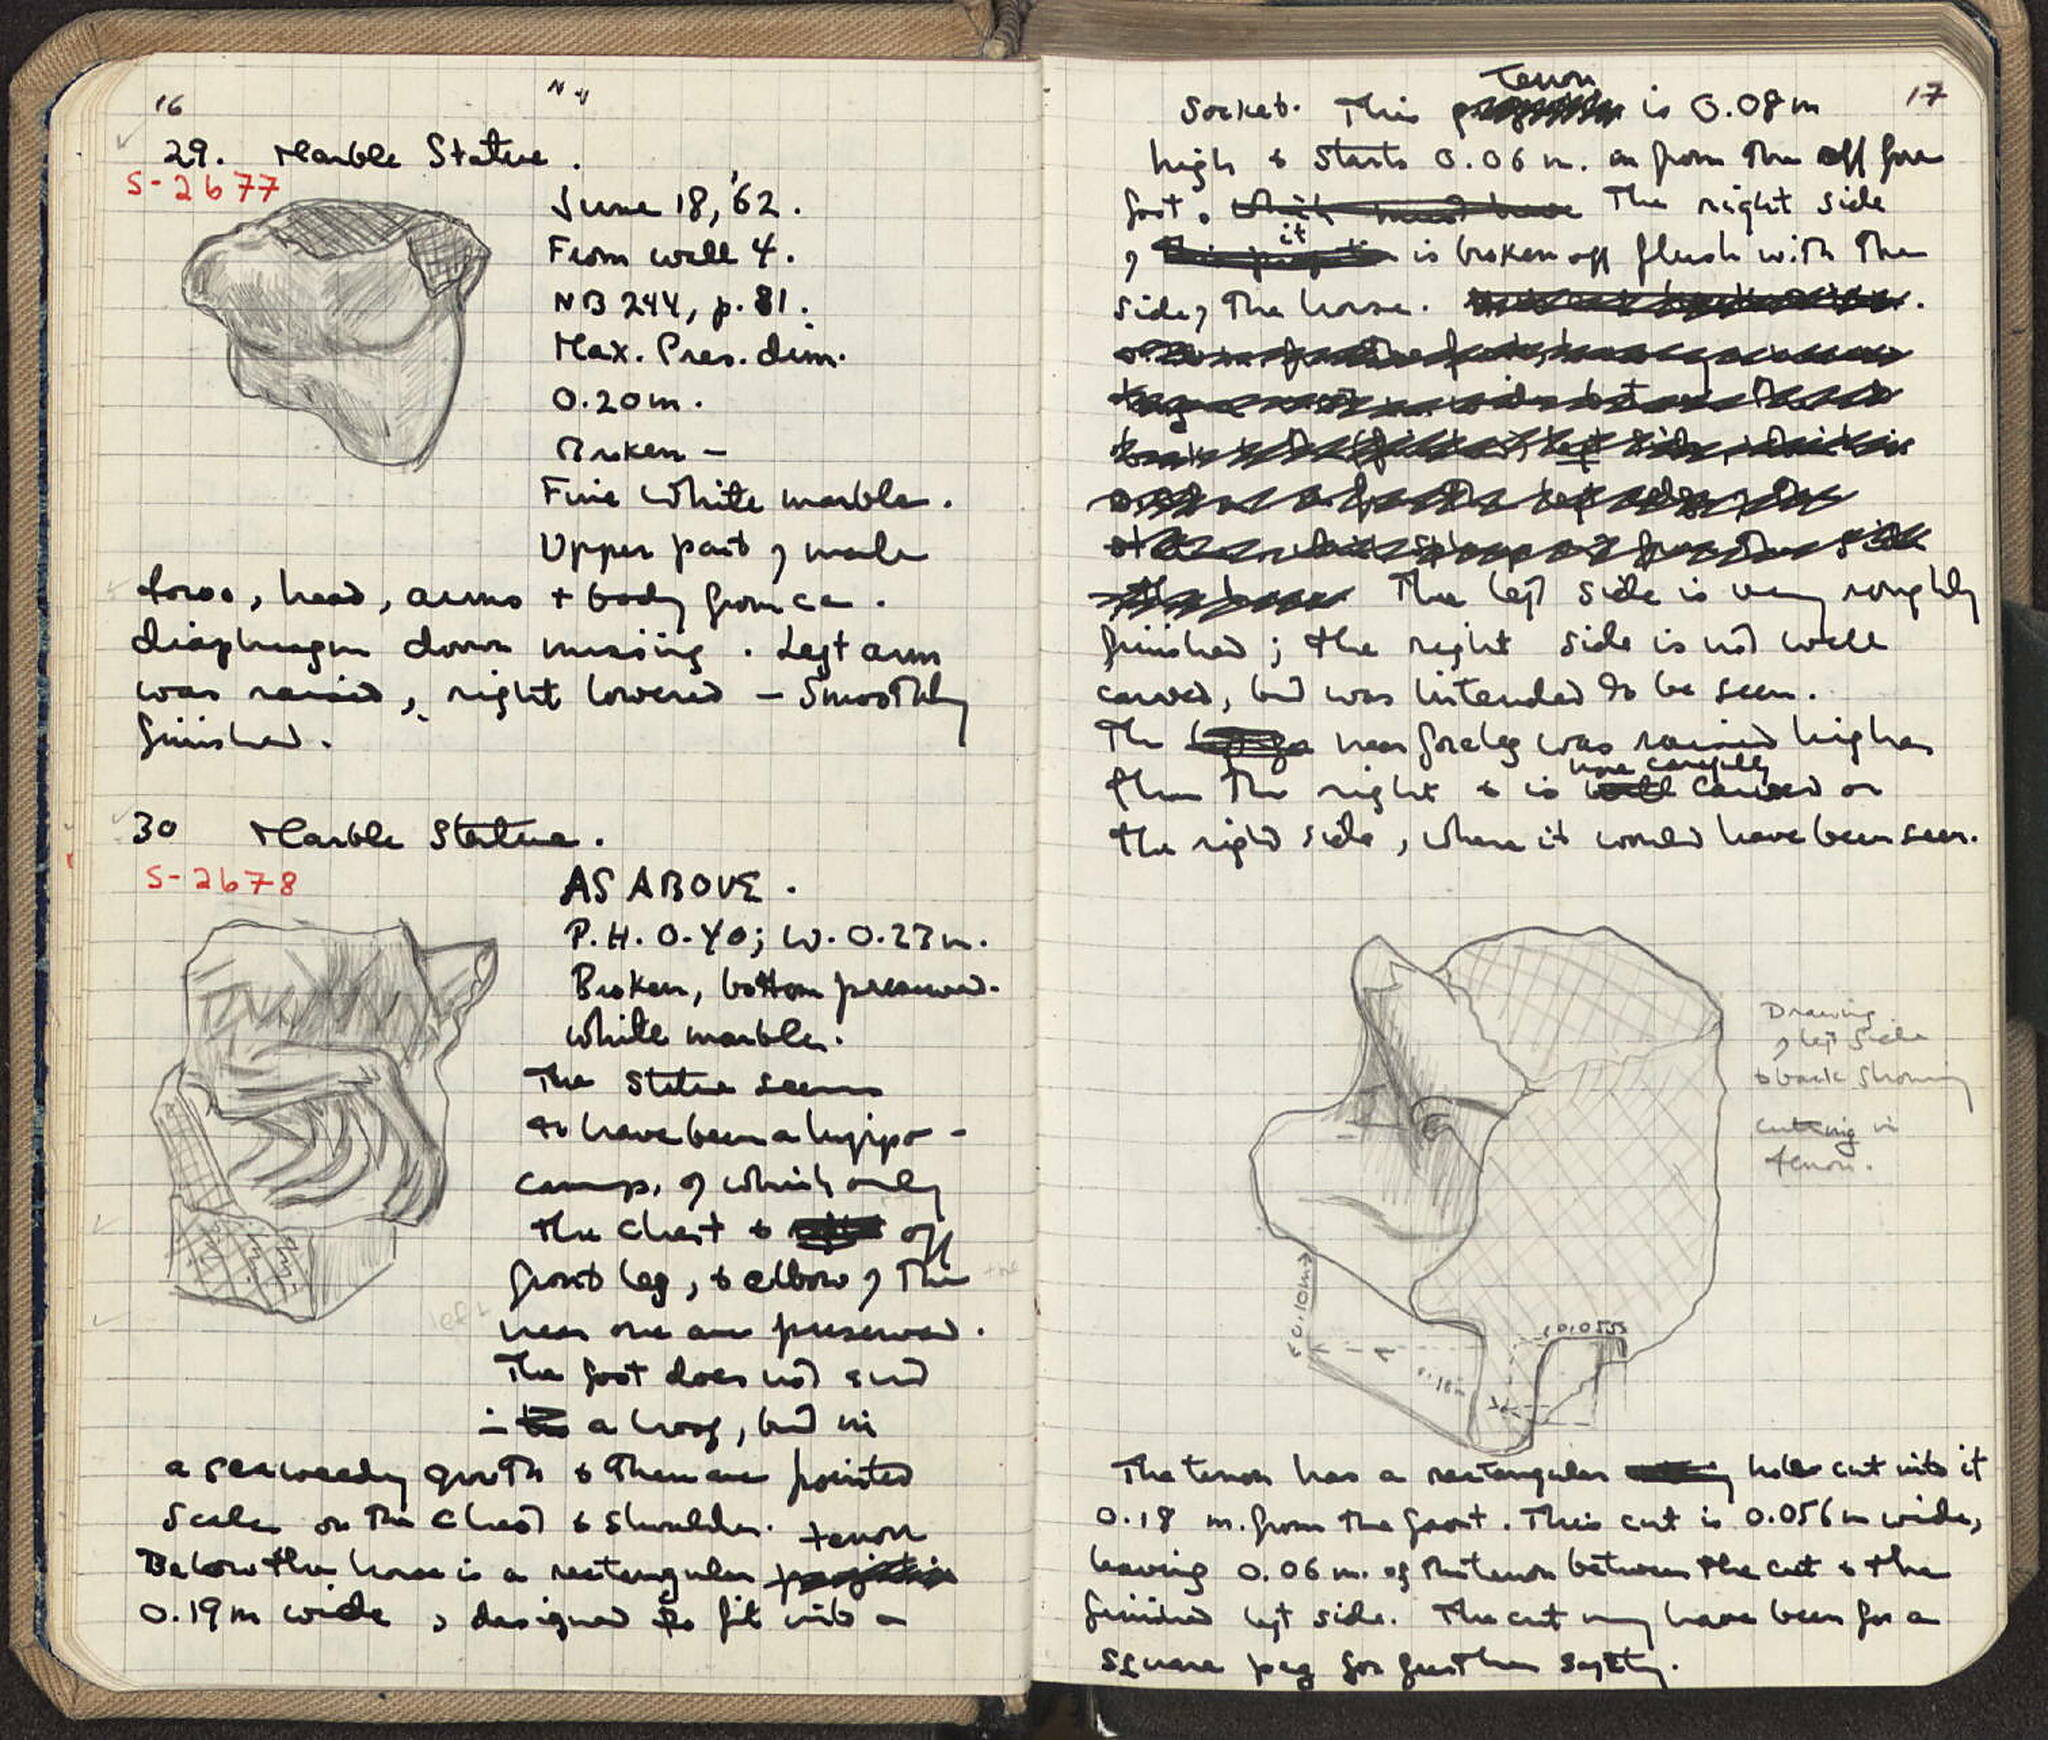 16
29. Marble Statue.
S-2677
June 18, '62.
From well 4.
NB 244, p. 81.
Max. Pres. dim.
0.20 m.
Broken –
Fine white marble.
Upper part of male
torso, head, arms + body from ca.
diaphragm down missing. Left arm
was raised, right lowered – Smoothly
finished.
30 Marble Statue.
S-2678
AS ABOVE.
P.H. 0.40; W. 0.23 m.
Broken, bottom preserved.
White marble.
The statue seems
to have been a hippo-
camp, of which only
the chest & off
front leg, & elbow of the
left
near one are preserved.
The foot does not end
in a hoof, but in
a seaweedy growth & there are pointed
scales on the chest & shoulder.
tenon
Below the horse is a rectangular
0.19 m wide, designed to fit into a
17
Tenon
Socket. This is 0.08 m
high & starts 0.06 m. in from the off fore
foot. which must have The right side
it
of is broken off flush with the
side of the horse.
The left side is very roughly
finished; the right side is not well
carved, but was intended to be seen.
The near foreleg was raised higher
more carefully
than the right & is well carved on
the right side, where it would have been seen.
Drawing
of left side
& back showing
cutting in
tenon.
0.10m
0.055
0.18m
The tenon has a rectangular hole cut into it
0.18 m. from the front. This cut is 0.056 m wide,
leaving 0.06 m. of the tenon between the cut & the
finished left side. The cut may have been for a
square peg for further safety.